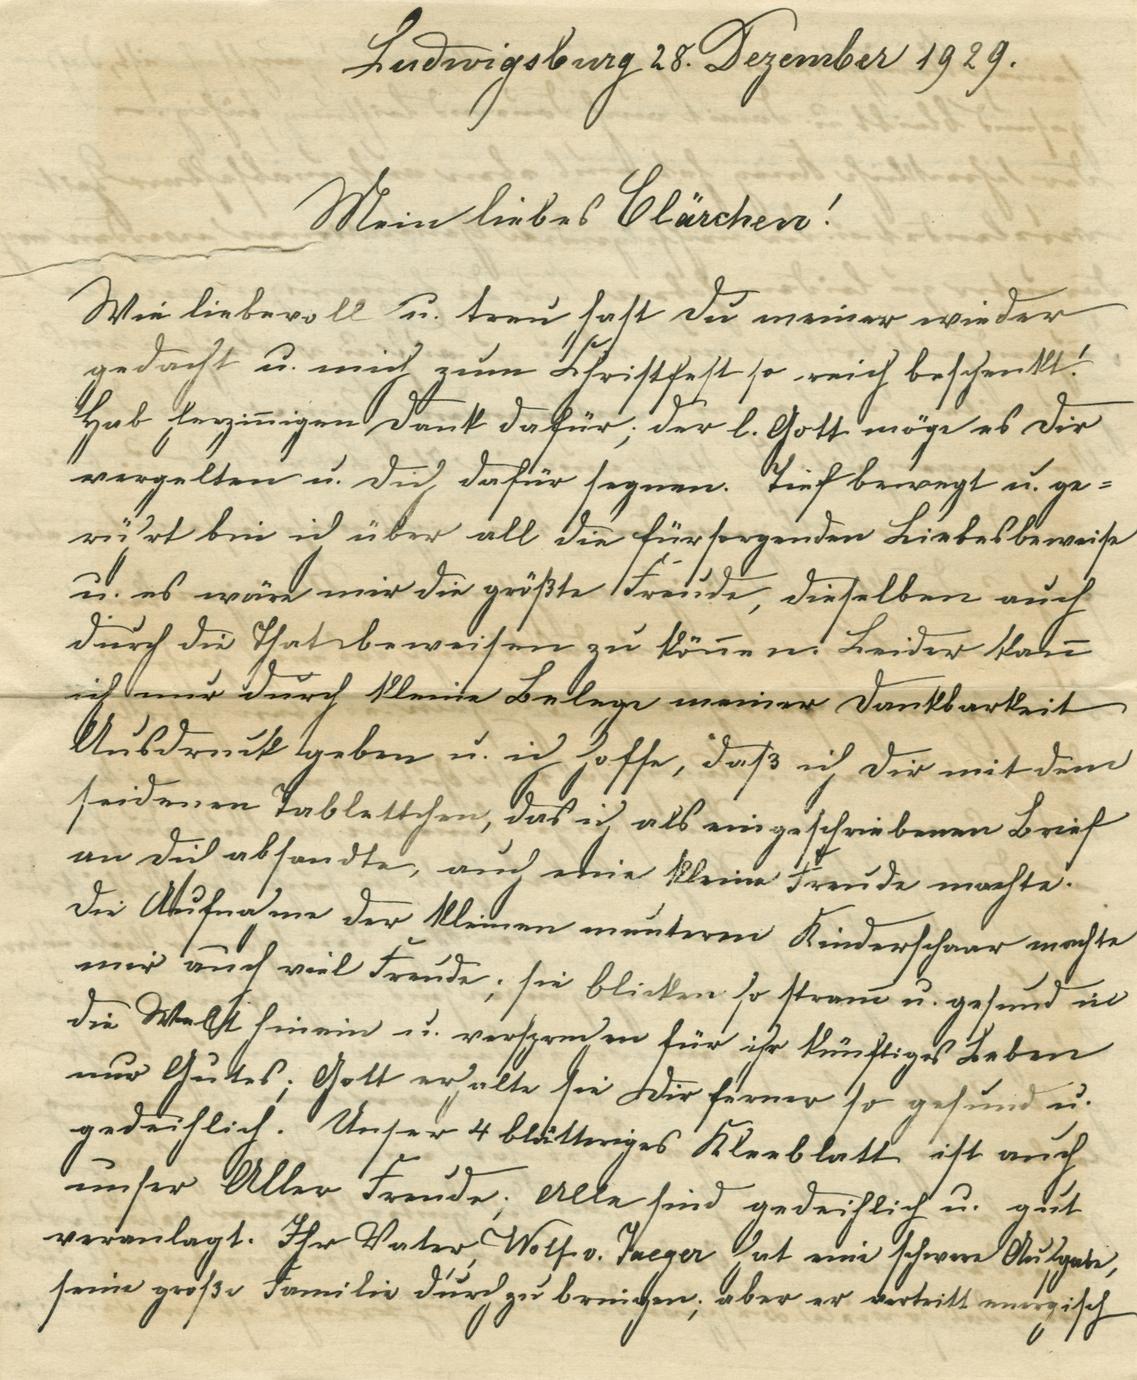 Ludwigsburg 28. Dezember 1929.
Mein liebes Clärchen!
Wie liebevoll u. treu hast Du meiner wieder
gedacht u. mich zum Christfest so reich beschenkt!
Hab herzinnigen Dank dafür; der l. Gott möge es Dir
vergelten u. Dich dafür segnen. Tief bewegt u. ge=
rührt bin ich über all die fürsorgenden Liebesbeweise
u. es wäre mir die größte Freude, dieselben auch
durch die That beweisen zu kön̄en. Leider kan̄
ich nur durch kleine Belege meiner Dankbarkeit
Ausdruck geben u. ich hoffe, daß ich Dir mit dem
seidenen Tablettchen, das ich als eingeschriebenen Brief
an Dich absandte, auch eine kleine Freude machte.
Die Aufnahme der kleinen munteren Kinderschaar machte
mir auch viel Freude; sie blicken so stram̄ u. gesund in
die Welt hinein u. versprechen für ihr künftiges Leben
nur Gutes; Gott erhalte sie Dir ferner so gesund u.
gedeihlich. Unser 4 blättriges Kleeblatt ist auch
unser Aller Freude; Alle sind gedeihlich u. gut
veranlagt. Ihr Vater, Wolf v. Jaeger hat eine schwere Aufgabe,
seine große Familie durchzubringen; aber er vertritt energisch